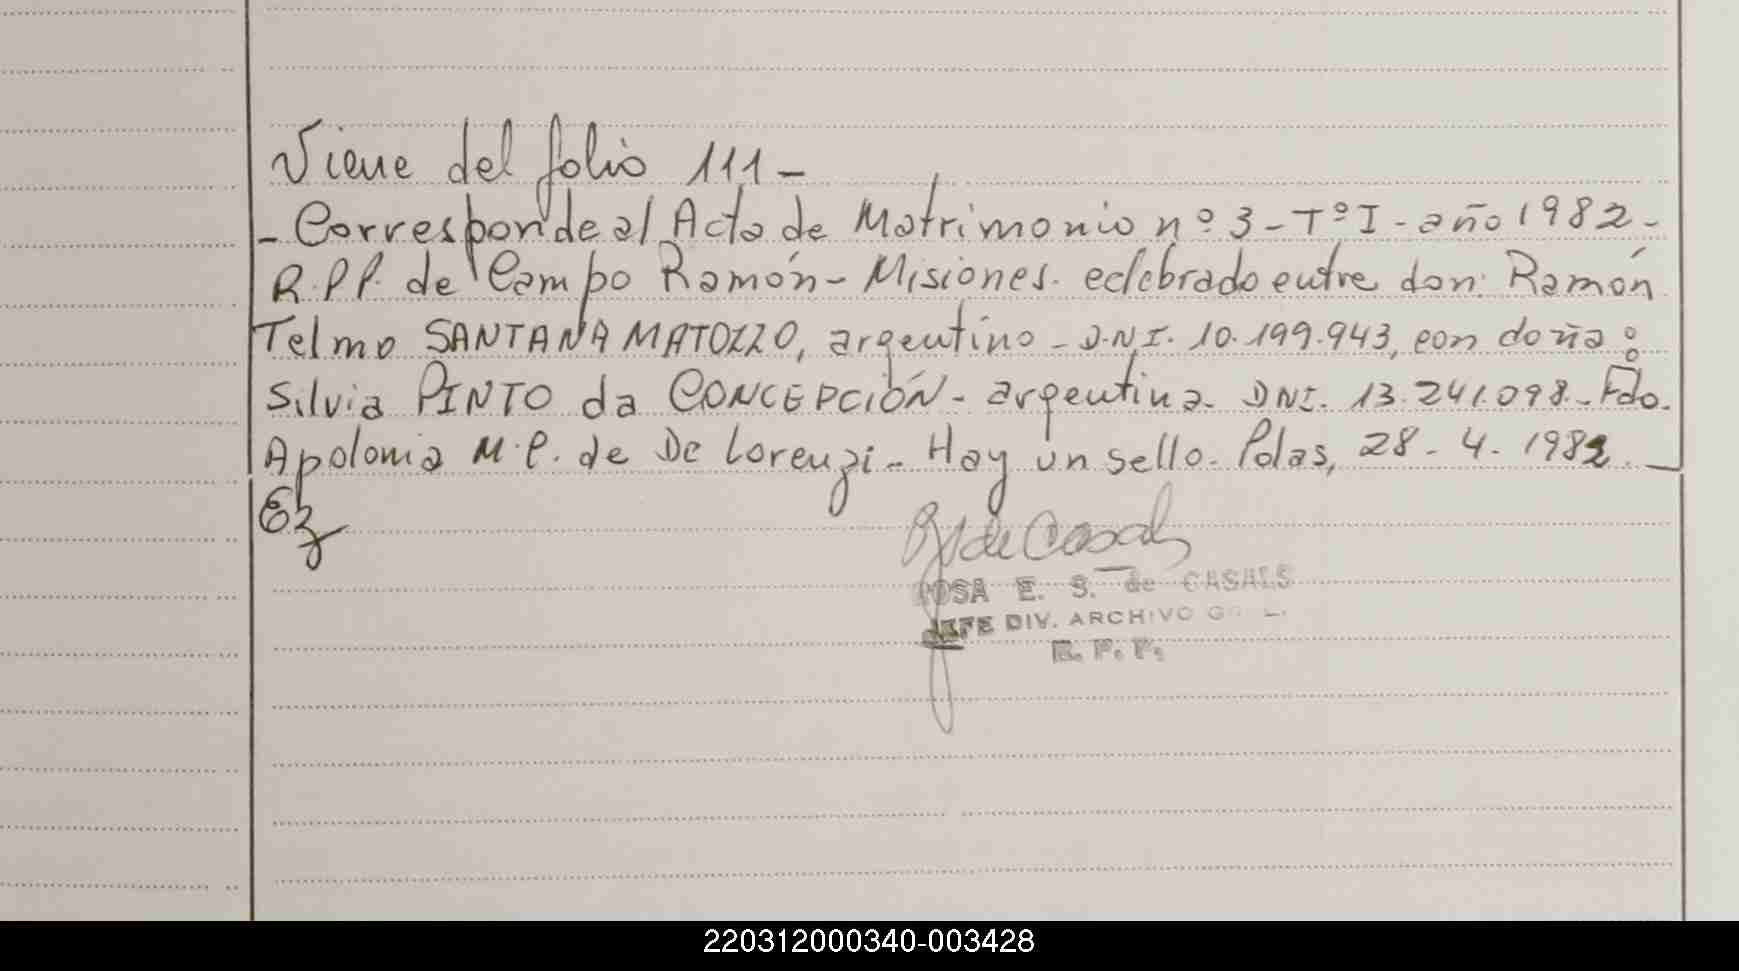 Viene del folio 111-
- Corresponde al Acta de Matrimonio nº 3 - Tº I - año 1982 -
R.P.P. de Campo Ramón - Misiones. celebrado entre don: Ramón
Telmo SANTANA MATOZZO, argentino - D.N.I. 10.199.943, con doña:
Silvia PINTO da CONCEPCIÓN - argentina - DNI. 13.241.098. - Fdo.
Apolonia M. P. de De Lorenzi - Hay un sello. Pdas, 28 - 4 - 1982. -
Ez
R de Casals
ROSA E. S. de CASALS
JEFE DIV. ARCHIVO GRAL.
R. P. P.
220312000340-003428